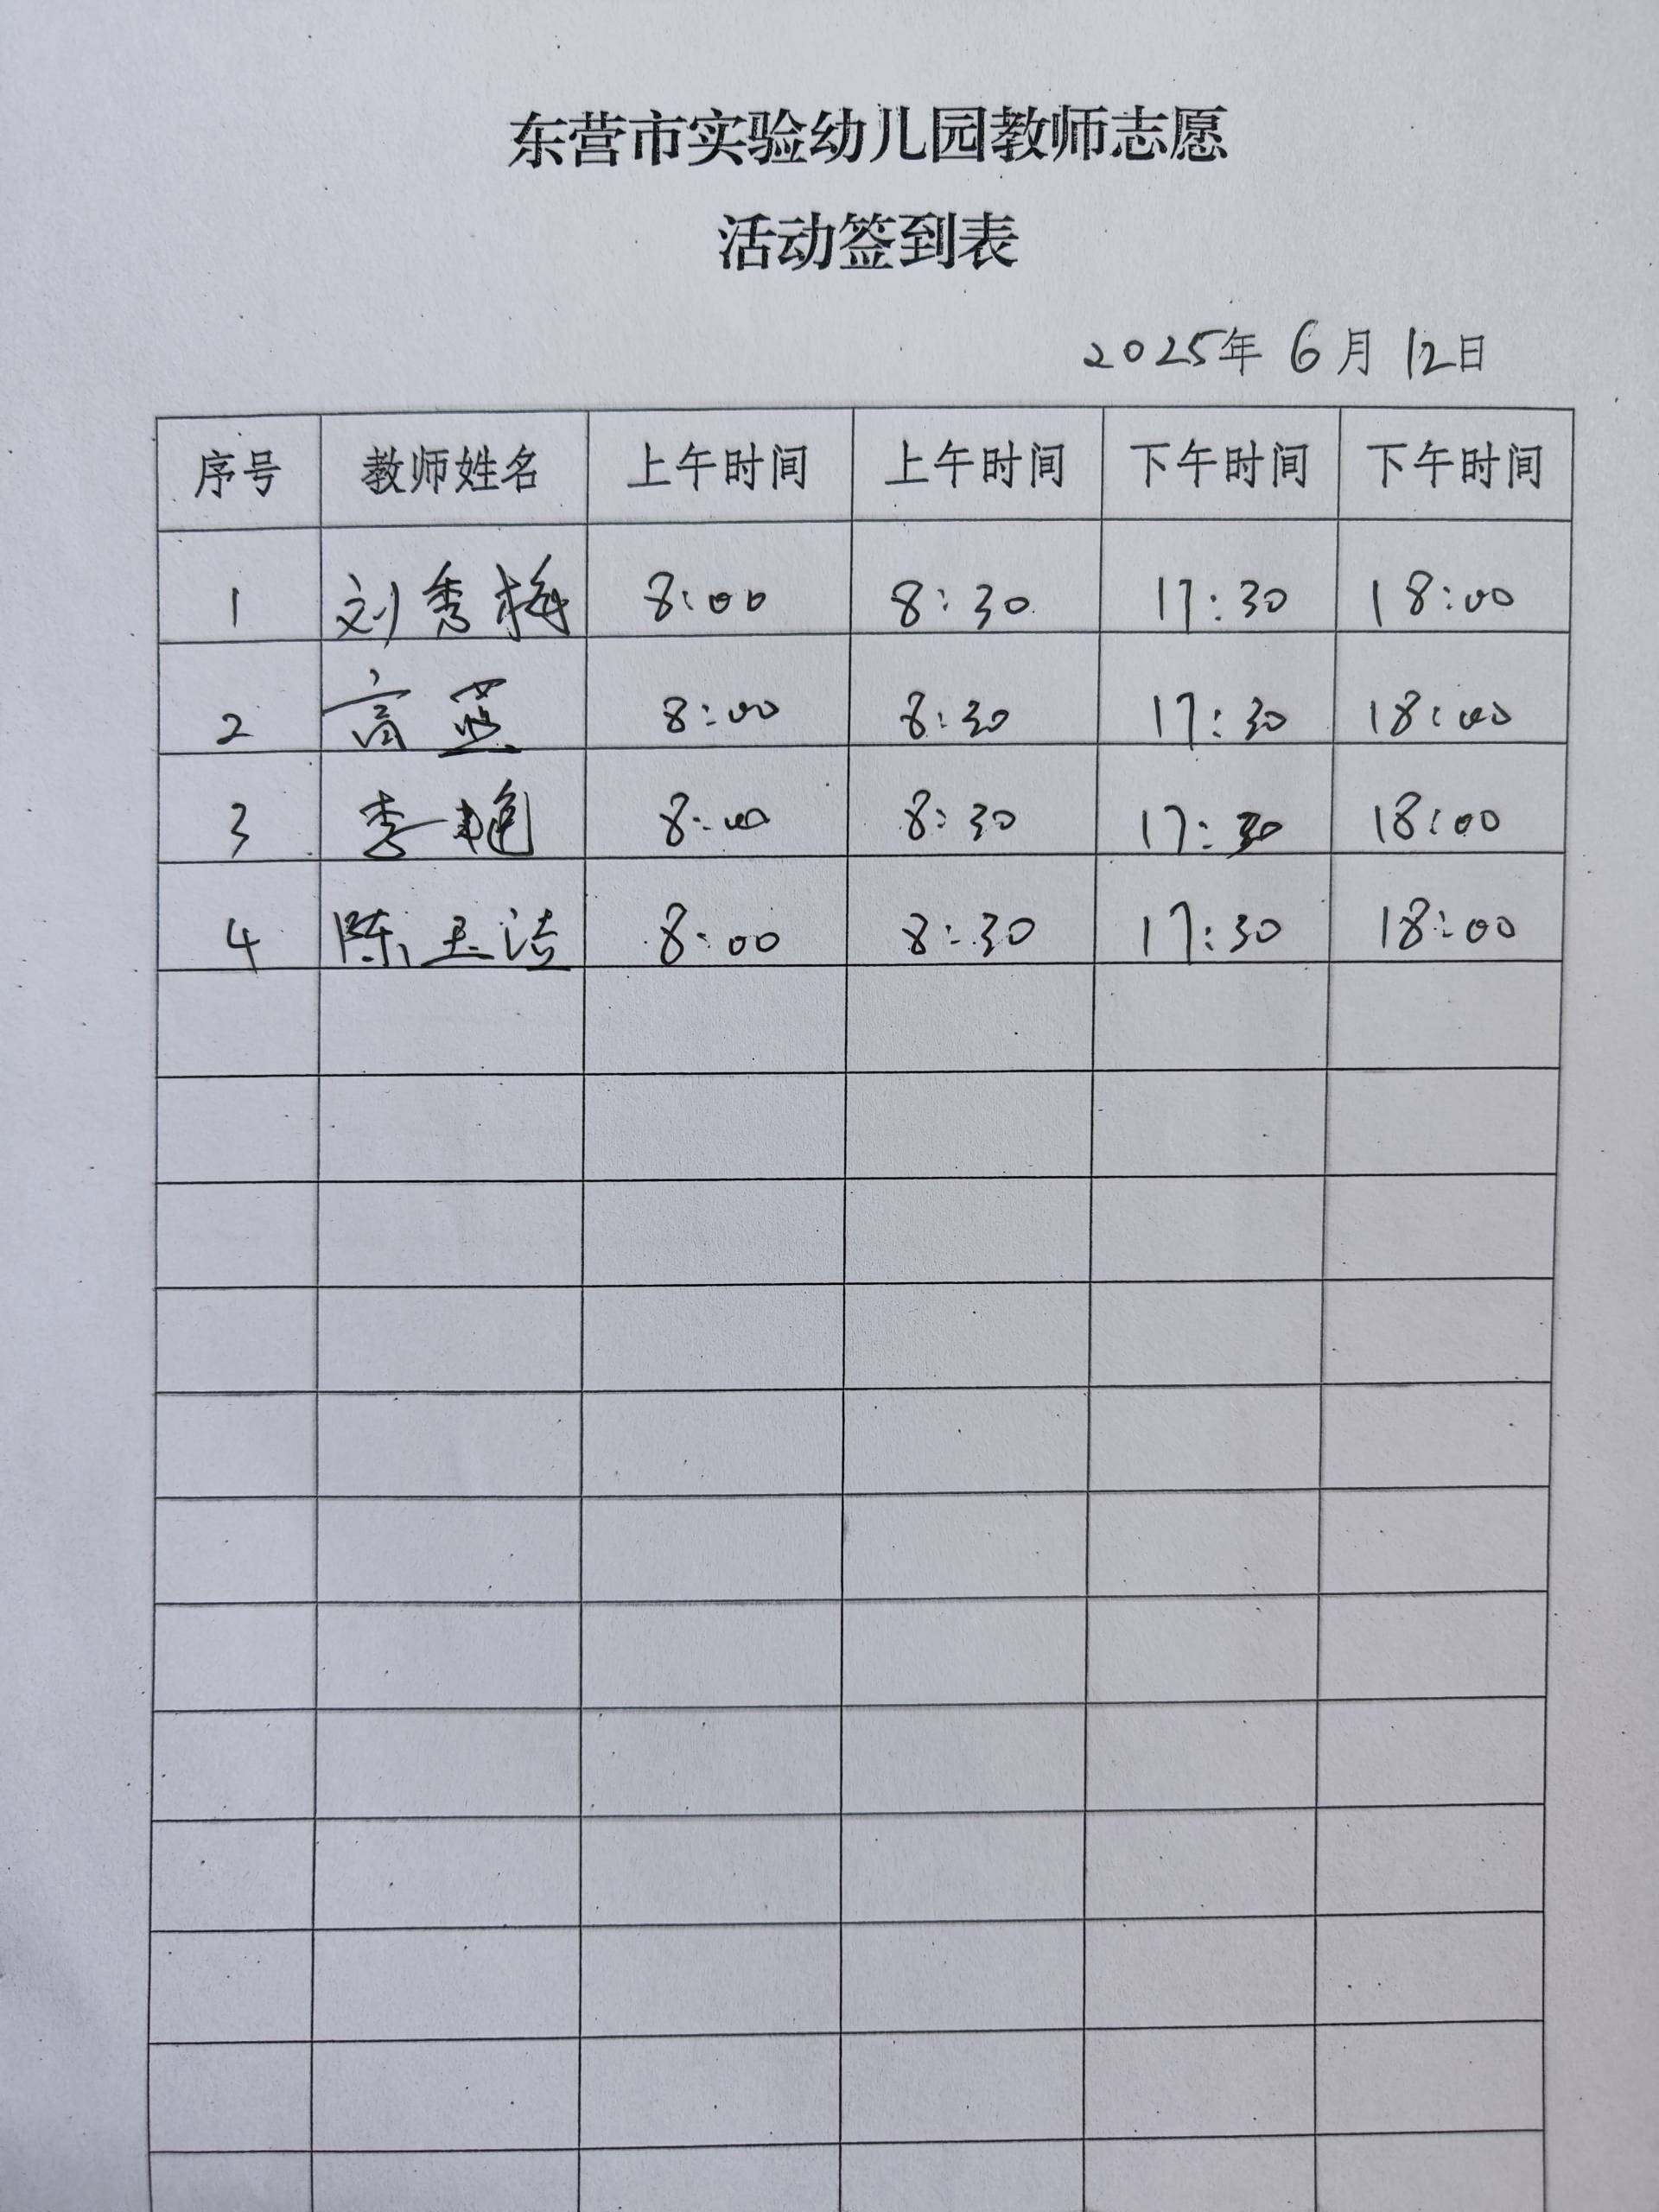 东营市实验幼儿园教师志愿
活动签到表
2025年 6月 12日
序号 教师姓名 上午时间 上午时间 下午时间 下午时间
1 刘秀梅 8:00 8:30 17:30 18:00
2 高蓝 8:00 8:30 17:30 18:00
3 李艳 8:00 8:30 17:30 18:00
4 陈玉洁 8:00 8:30 17:30 18:00